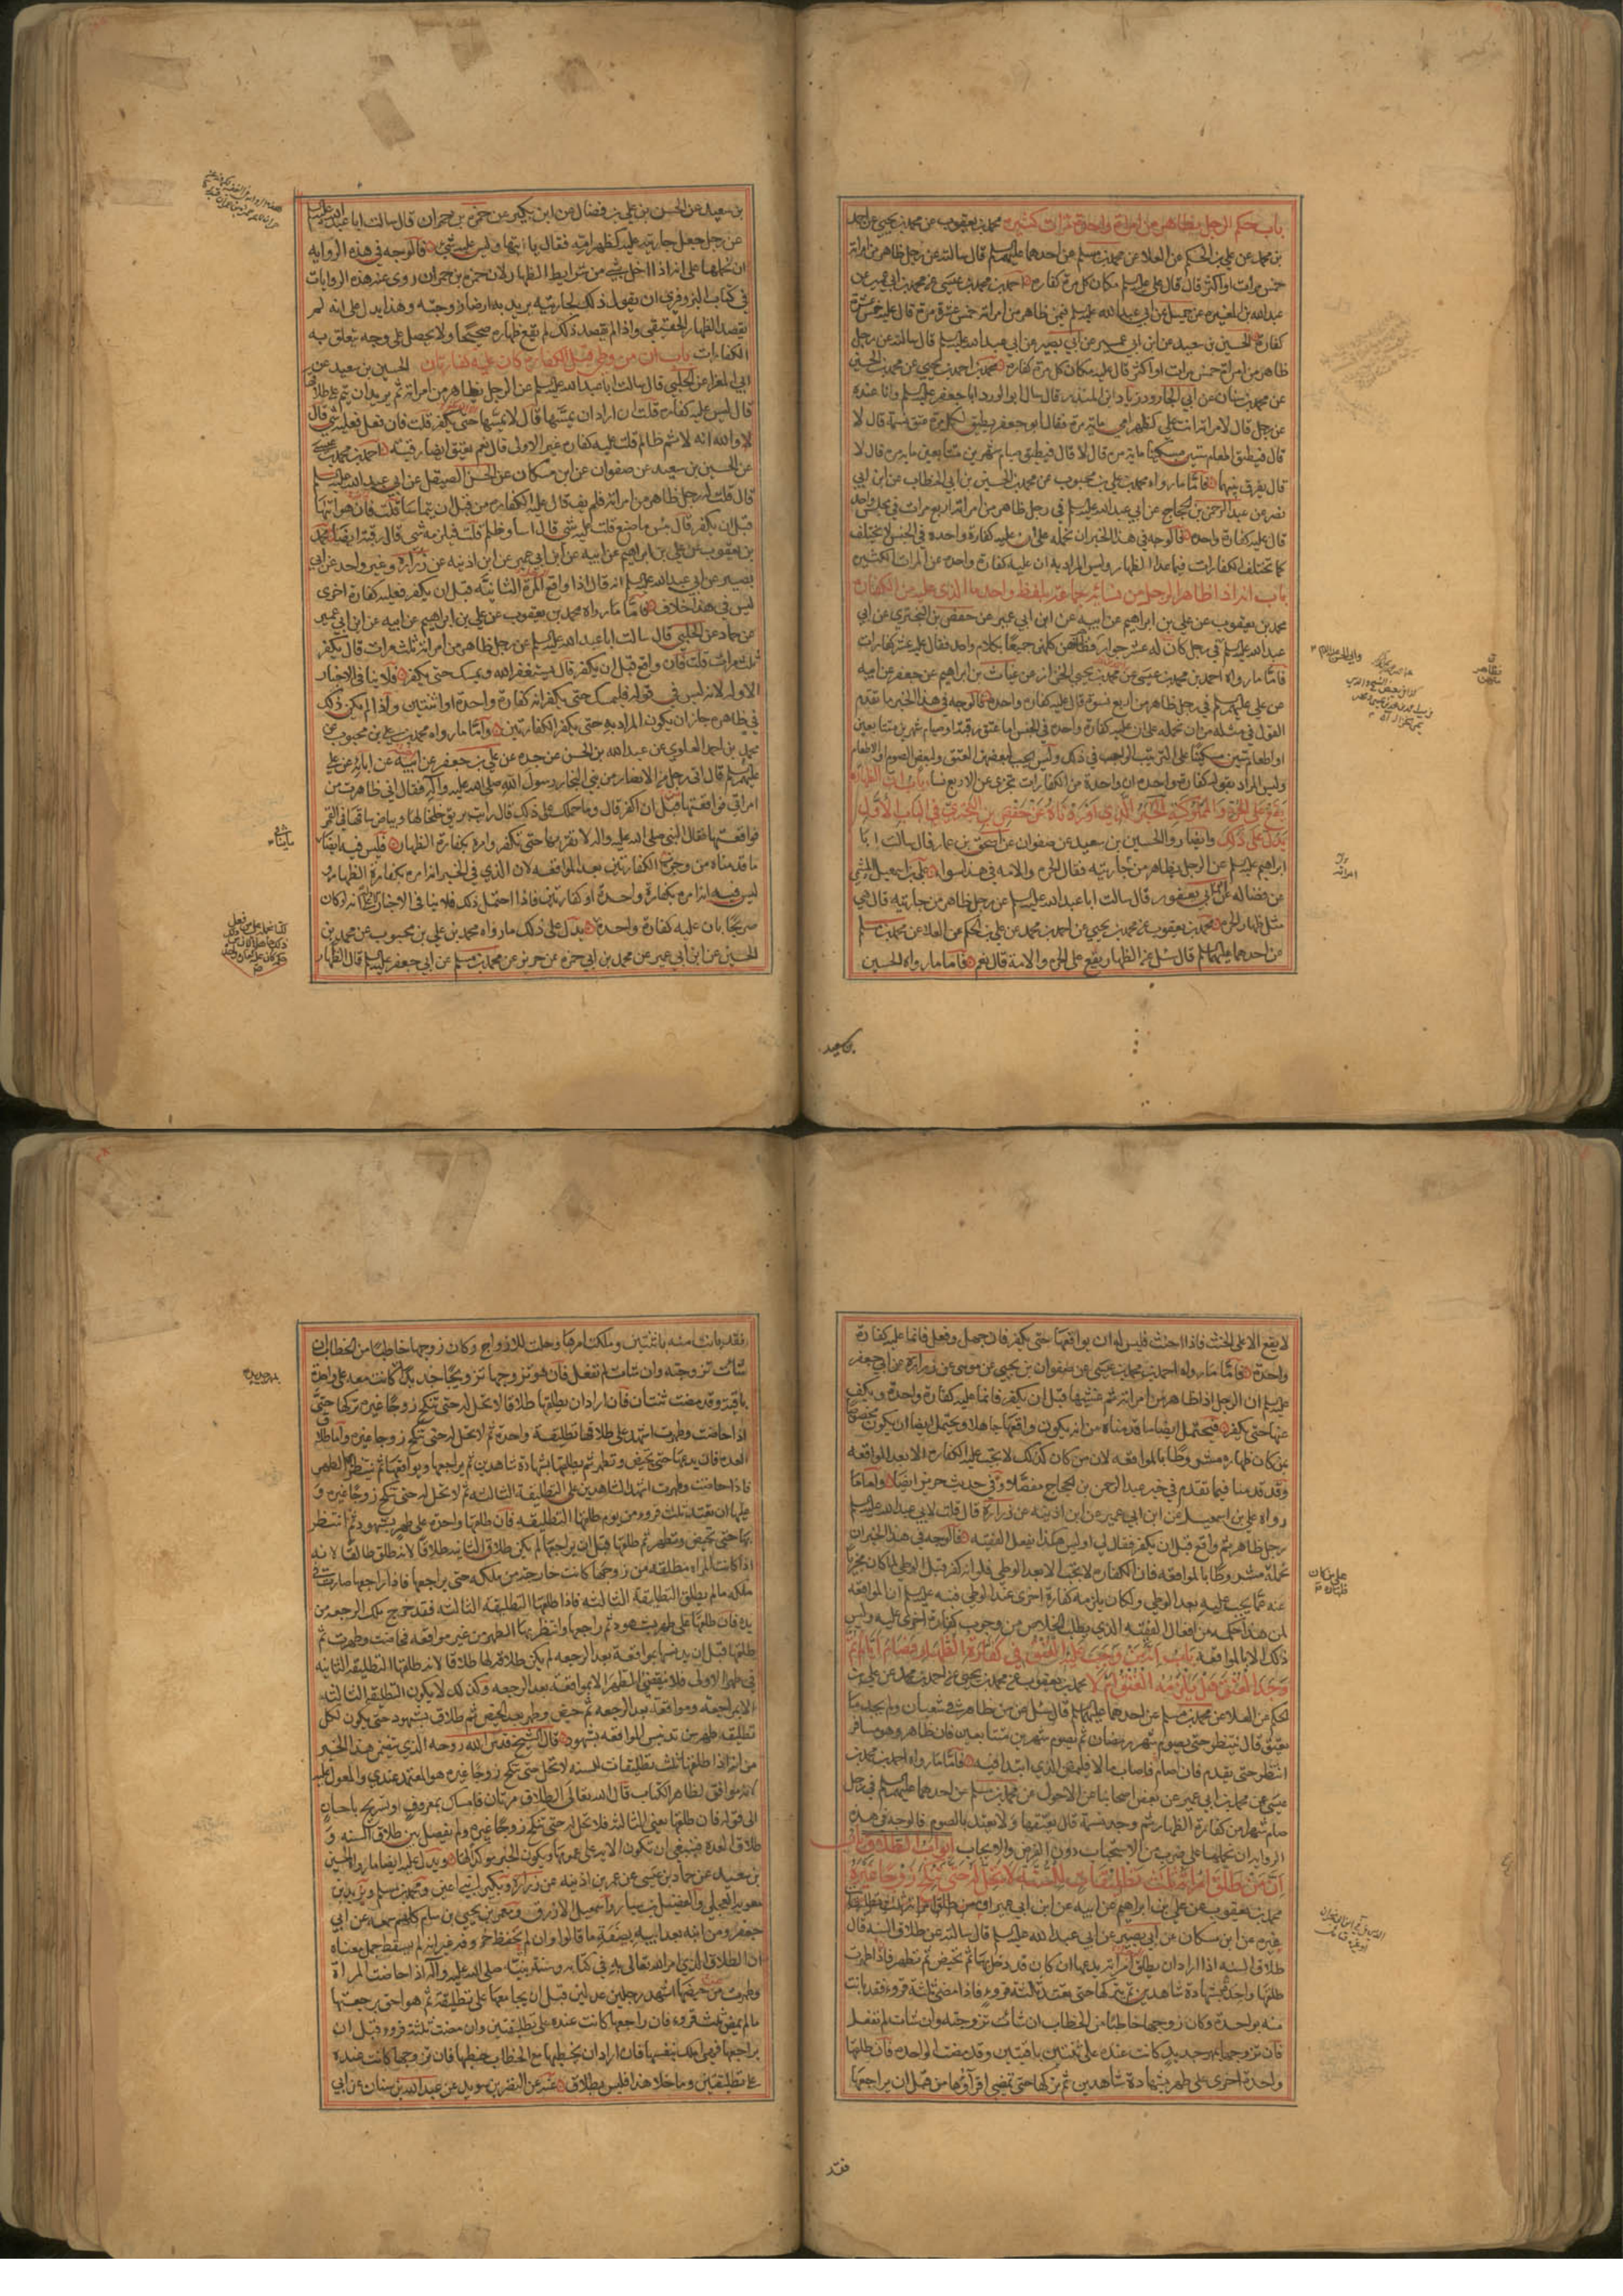 باب حكم الرجل يظاهر من امراة واحدة مرات كثيره محمد بن يعقوب عن محمد بن يحيى عن احمد
بن محمد عن علي بن الحكم عن العلا عن محمد بن مسلم عن احدهما عليهما السلم قال سالته عن رجل ظاهر من امراته
خمس مرات او اكثر قال قال علي عليه السلم مكان كل مرة كفاره احمد بن محمد بن عيسى عن محمد بن ابي عمير عن
عبدالله بن المغيره عن جميل عن ابي عبدالله عليه السلم فيمن ظاهر من امراته خمس عشرة مرة قال عليه خمس عشرة
كفارة الحسين بن سعيد عن ابن ابي عمير عن ابي بصير عن ابي عبدالله عليه السلم قال سالته عن رجل
ظاهر من امراته خمس مرات او اكثر قال عليه مكان كل مرة كفاره محمد بن احمد بن يحيى عن محمد بن الحسين
عن محمد بن سنان عن ابي الجارود زياد بن المنذر قال سال ابو الورد ابا جعفر عليه السلم وانا عنده
عن رجل قال لامراته انت علي كظهر امي ماية مرة فقال ابو جعفر يطيق لكل مرة عتق نسمة قال لا
قال فيطيق اطعام ستين مسكينا ماية مرة قال لا قال فيطيق صيام شهرين متتابعين ماية مرة قال لا
قال يفرق بينهما فاما ما رواه محمد بن علي بن محبوب عن محمد بن الحسين بن ابي الخطاب عن ابن ابي
نصر عن عبد الرحمن بن الحجاج عن ابي عبدالله عليه السلم في رجل ظاهر من امراته اربع مرات في مجلس واحد
قال عليه كفارة واحده فالوجه في هذا الخبر ان نحمله على ان عليه كفارة واحده في الجنس لا يختلف
كما تختلف الكفارات فيما عدا الظهار وليس المراد به ان عليه كفارة واحده عن المرات الكثيره
باب انه اذا ظاهر الرجل من نسائه جماعة بلفظ واحد ما الذي عليه من الكفاره
محمد بن يعقوب عن علي بن ابراهيم عن ابيه عن ابن ابي عمير عن حفص بن البختري عن ابي
عبدالله عليه السلم في رجل كان له عشر جوار فظاهر منهن كلهن جميعا بكلام واحد فقال عليه عشر كفارات
فاما ما رواه احمد بن محمد بن عيسى عن محمد بن يحيى الخزاز عن غياث بن ابراهيم عن جعفر عن ابيه
عن علي عليهم السلم في رجل ظاهر من اربع نسوة قال عليه كفارة واحده فالوجه في هذا الخبر ما تقدم
القول في مثله من ان نحمله على ان عليه كفارة واحدة في الجنس اما عتق رقبة او صيام شهرين متتابعين
او اطعام ستين مسكينا على الترتيب الواجب في ذلك وليس يجب لبعضهن العتق ولبعض الصوم والاطعام
وليس المراد بقوله كفارة واحده ان واحدة من الكفارات تجزي عن الاربع نسا باب ان الظهار
يقع على الحرة والمملوكة الخبر الذي اوردناه عن حفص بن البختري في الباب الاول
يدل على ذلك وايضا روا الحسين بن سعيد عن صفوان عن اسحق بن عمار قال سالت ابا
ابراهيم عليه السلم عن الرجل يظاهر من جاريته فقال الحرة والامة في هذا سوا علي بن اسمعيل الميثمي
عن فضاله عن ابن ابي يعفور قال سالت ابا عبدالله عليه السلم عن رجل ظاهر من جاريته قال هي
مثل ظهار الحرة محمد بن يعقوب عن محمد بن يحيى عن احمد بن محمد عن علي بن الحكم عن العلا عن محمد بن مسلم
عن احدهما عليهما السلم قال سئل عن الظهار يقع على الحرة والامة قال نعم فاما ما رواه الحسين
بن سعيد
بن سعيد عن الحسن بن علي بن فضال عن ابن بكير عن حمزه بن حمران قال سالت ابا عبدالله عليه السلم
عن رجل جعل جاريته عليه كظهر امه فقال ياتيها وليس عليه شئ فالوجه في هذه الروايه
ان نحملها على انه اذا اخل بشئ من شرايط الظهار لان حمزه بن حمران روى هذه الروايات
في كتاب البزوفري ان يقول ذلك لجاريته يريد به ارضا زوجته وهذا يدل على انه لم
يقصد الظهار الحقيقي واذا لم يقصد ذلك لم يقع ظهاره صحيحا ولا يحصل على وجه يتعلق به
الكفارات باب ان من وطئ قبل الكفاره كان عليه كفارتان الحسين بن سعيد عن
ابي المغرا عن الحلبي قال سالت ابا عبدالله عليه السلم عن الرجل يظاهر من امراته ثم يريد ان يتم على طلاقها
قال ليس عليه كفاره قلت ان اراد ان يمسها قال لا يمسها حتى يكفر قلت فان فعل فعليه شئ قال
اي والله انه لاثم ظالم قلت عليه كفاره غير الاولى قال نعم يعتق ايضا رقبة احمد بن محمد بن عيسى
عن الحسين بن سعيد عن صفوان عن ابن مسكان عن الحسن الصيقل عن ابي عبدالله عليه السلم
قال قلت له رجل ظاهر من امراته فلم يف قال عليه الكفاره من قبل ان يتماسا قلت فان هو اتاها
قبل ان يكفر قال بئس ما صنع قلت عليه شئ قال اسا وظلم قلت فيلزمه شئ قال رقبة ايضا محمد
بن يعقوب عن علي بن ابراهيم عن ابيه عن ابن ابي عمير عن ابن اذينه عن زرارة وغير واحد عن ابي
بصير عن ابي عبدالله عليه السلم انه قال اذا واقع المرة الثانية قبل ان يكفر فعليه كفارة اخرى
ليس في هذا خلاف فاما ما رواه محمد بن يعقوب عن علي بن ابراهيم عن ابيه عن ابن ابي عمير
عن حماد عن الحلبي قال سالت ابا عبدالله عليه السلم عن رجل ظاهر من امراته ثلث مرات قال يكفر
ثلث مرات قلت فان واقع قبل ان يكفر قال يستغفر الله ويمسك حتى يكفر فلا ينافي الاخبار
الاوله لانه ليس في قوله فليمسك حتى يكفر انه كفارة واحدة او اثنتين واذا لم يكن ذلك
في ظاهره جاز ان يكون المراد به حتى يكفر الكفارتين واما ما رواه محمد بن علي بن محبوب عن
محمد بن احمد العلوي عن عبدالله بن الحسن عن جده عن علي بن جعفر عن اخيه عن ابائه عن علي
عليهم السلم قال اتى رجل من الانصار من بني النجار رسول الله صلى الله عليه واله فقال اني ظاهرت من
امراتي فواقعتها قبل ان اكفر قال وما حملك على ذلك قال رايت بريق خلخالها وبياض ساقها في القمر
فواقعتها فقال النبي صلى الله عليه واله لا تقربها حتى تكفر وامره بكفارة الظهار فليس فيه ايضا
ما قدمناه من وجوب الكفارتين بعد المواقعه لان الذي في الخبر انه امره بكفارة الظهار و
ليس فيه انه امره بكفارة واحدة او كفارتين فاذا احتمل ذلك فلا ينافي الاخبار على انه لو كان
صريحا بان عليه كفارة واحدة يدل على ذلك ما رواه محمد بن علي بن محبوب عن محمد بن
الحسين عن ابن ابي عمير عن محمد بن ابي حمزه عن حريز عن محمد بن مسلم عن ابي جعفر عليه السلم قال الظهار
لا يقع الا على الحنث فاذا حنث فليس له ان يواقعها حتى يكفر فان جهل وفعل فانما عليه كفارة
واحدة فاما ما رواه احمد بن محمد بن عيسى عن صفوان بن يحيى عن موسى عن زرارة عن ابي جعفر
عليه السلم ان الرجل اذا ظاهر من امراته ثم غشيها قبل ان يكفر فانما عليه كفارة واحدة ويكف
عنها حتى يكفر فيحتمل ايضا ما قدمناه من انه يكون واقعها جاهلا ويحتمل ايضا ان يكون مخصوصا
بمن كان ظهاره مشروطا بالمواقعه لان من كان كذلك لا يجب عليه الكفاره الا بعد المواقعه
وقد قدمنا فيما تقدم في خبر عبد الرحمن بن الحجاج مفصلا وفي حديث حريز ايضا واما ما
رواه علي بن اسمعيل عن ابن ابي عمير عن ابن اذينه عن زرارة قال قلت لابي عبدالله عليه السلم
رجل ظاهر ثم واقع قبل ان يكفر فقال لي اوليس هكذا يفعل الفقيه فالوجه في هذا الخبر ان
نحمله مشروطا بالمواقعه فان الكفاره لا تجب الا بعد الوطي فلو انه كفر قبل الوطي لما كان مجزيا
عنه عما يجب عليه بعد الوطي ولكان يلزمه كفارة اخرى عند الوطي فنبه عليه السلم ان المواقعه
لمن هذا حكمه من افعال الفقيه الذي يطلب الخلاص من وجوب كفارة اخرى عليه وليس
ذلك الا بالمواقعه باب انه من وجب عليه العتق في كفارة الظهار فصام اياما ثم
وجد العتق هل يلزمه العتق ام لا محمد بن يعقوب عن محمد بن يحيى عن احمد بن محمد عن علي بن
الحكم عن العلا عن محمد بن مسلم عن احدهما عليهما السلم قال سئل عن من ظاهر في شعبان ولم يجد ما
يعتق قال ينتظر حتى يصوم شهر رمضان ثم يصوم شهرين متتابعين فان ظاهر وهو مسافر
انتظر حتى يقدم فان صام فاصاب مالا فليمض الذي ابتدا فيه فاما ما رواه احمد بن محمد بن
عيسى عن محمد بن ابي عمير عن بعض اصحابنا عن الاحول عن محمد بن مسلم عن احدهما عليهما السلم في رجل
صام شهرا من كفارة الظهار ثم وجد نسمة قال يعتقها ولا يعتد بالصوم فالوجه في هذه
الروايه ان نحملها على ضرب من الاستحباب دون الفرض والايجاب ابواب الطلاق باب
ان من طلق امراة ثلث تطليقات للسنه لا تحل له حتى تنكح زوجا غيره
محمد بن يعقوب عن علي بن ابراهيم عن ابيه عن ابن ابي عمير او
غيره عن ابن مسكان عن ابي بصير عن ابي عبدالله عليه السلم قال سالته عن طلاق السنه قال
طلاق السنه اذا اراد ان يطلق الرجل امراته يدعها ان كان قد دخل بها ثم تحيض ثم تطهر فاذا طهرت
طلقها واحدة بشهادة شاهدين ثم يتركها حتى تعتد ثلثة قروء فاذا مضى ثلثة قروء فقد بانت
منه بواحدة وكان زوجها خاطبا من الخطاب ان شائت تزوجته وان شات لم تفعل
فان تزوجها بمهر جديد كانت عنده على ثنتين باقيتين وقد مضت الواحده فان طلقها
واحدة اخرى على طهر بشهادة شاهدين ثم تركها حتى تمضي اقراؤها من قبل ان يراجعها
فقد
فقد بانت منه باثنتين وملكت امرها وحلت للازواج وكان زوجها خاطبا من الخطاب ان
شائت تزوجته وان شات لم تفعل فان هو تزوجها تزويجا جديدا كانت معه على واحدة
باقية وقد مضت ثنتان فان اراد ان يطلقها طلاقا لا تحل له حتى تنكح زوجا غيره تركها حتى
اذا حاضت وطهرت اشهد على طلاقها تطليقة واحدة ثم لا تحل له حتى تنكح زوجا غيره واما طلاق
العده فان يدعها حتى تحيض وتطهر ثم يطلقها بشهادة شاهدين ثم يراجعها ويواقعها ثم ينتظر بها الطهر
فاذا حاضت وطهرت اشهد الشاهدين على التطليقة الثالثه ثم لا تحل له حتى تنكح زوجا غيره و
عليها ان تعتد ثلث قروء من يوم طلقها التطليقه فان طلقها واحدة على طهر بشهود ثم انتظر
بها حتى تحيض وتطهر ثم طلقها قبل ان يراجعها لم يكن طلاق الثانيه طلاقا لانه طلق طالقا لانه
اذا كانت المراه مطلقه من زوجها كانت خارجة من ملكه حتى يراجعها فاذا راجعها صارت في
ملكه ما لم يطلق التطليقة الثالثه فاذا طلقها التطليقة الثالثه فقد خرج ملك الرجعه من
يده فان طلقها على طهر بشهود ثم راجعها وانتظر بها الطهر من غير مواقعه فحاضت وطهرت ثم
طلقها قبل ان يدنسها بمواقعة بعد الرجعه لم يكن طلاقه لها طلاقا لانه طلقها التطليقة الثانيه
في طهر الاولى ولا ينقضي الطهر الا بمواقعة بعد الرجعه وكذلك لا يكون التطليقه الثالثه
الا بمراجعة ومواقعة بعد الرجعه ثم حيض وطهر بعد الحيض ثم طلاق بشهود حتى يكون لكل
تطليقه طهر من تدنيس المواقعه بشهود قال الشيخ قدس الله روحه الذي يتضمن هذا الخبر
من انه اذا طلقها ثلث تطليقات للسنه لا تحل حتى تنكح زوجا غيره هو المعتمد عندي والمعول عليه
لانه موافق لظاهر الكتاب قال الله تعالى الطلاق مرتان فامساك بمعروف او تسريح باحسان
الى قوله فان طلقها يعني الثالثه فلا تحل له حتى تنكح زوجا غيره ولم يفصل بين طلاق السنه و
طلاق العدة فينبغي ان تكون الايه على عمومها ويكون الخبر مؤكدا لها ويدل عليه ايضا ما رواه الحسين
بن سعيد عن حماد بن عيسى عن عمر بن اذينه عن زراره وبكير ابني اعين ومحمد بن مسلم وبريد بن
معويه العجلي والفضيل بن يسار واسمعيل الازرق ومعمر بن يحيى بن سام كلهم سمعه عن ابي
جعفر ومن ابنه بعد ابيه بصفة ما قالوا وان لم يحفظ حروفه غير انه لم يسقط جمل معناه
ان الطلاق الذي امر الله تعالى به في كتابه وسنة نبيه صلى الله عليه واله انه اذا حاضت المراة
وطهرت من حيضها اشهد رجلين عدلين قبل ان يجامعها على تطليقة ثم هو احق برجعتها
ما لم يمض ثلثة قروء فان راجعها كانت عنده على تطليقتين وان مضت ثلثة قروء قبل ان
يراجعها فهي املك بنفسها فان اراد ان يخطبها مع الخطاب خطبها فان تزوجها كانت عنده
على تطليقتين وما خلا هذا فليس بطلاق عنه عن النضر بن سويد عن عبدالله بن سنان عن ابي